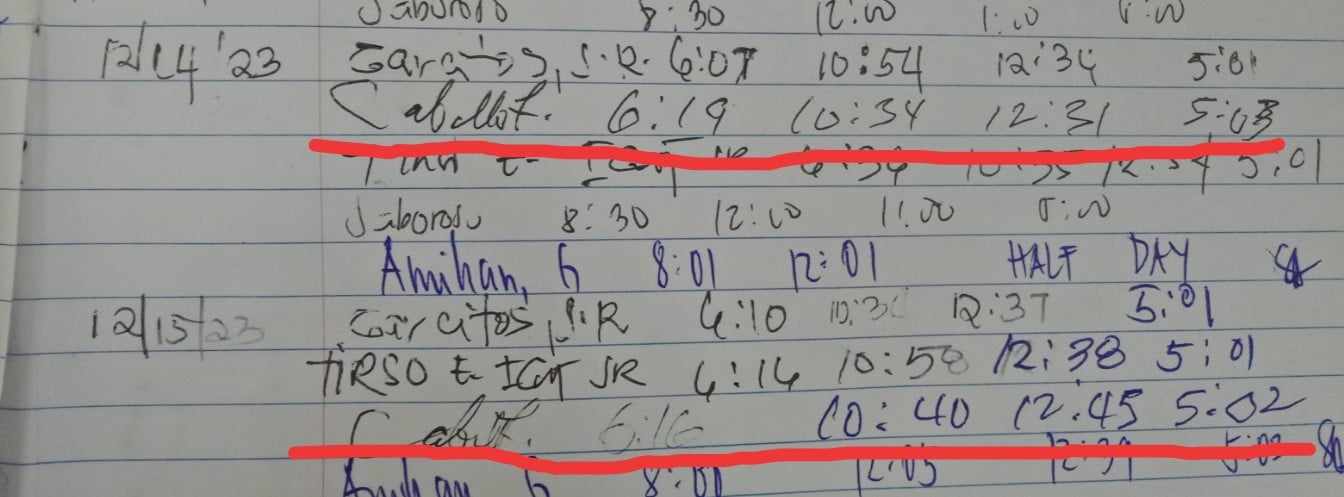 Jaboroso 8:30 12:00 1:00 5:00
12/14/'23 Garcitos, S.R. 6:07 10:54 12:34 5:01
6:19 10:34 12:31 5:03
E. IGOT JR 6:34 10:35 12:34 5:01
Jaboroso 8:30 12:00 1:00 5:00
Amihan, G 8:01 12:01 HALF DAY
12/15/23 Garcitos, S.R 6:10 12:37 5:01
TIRSO E. IGOT JR 6:16 10:58 12:38 5:01
6:16 10:40 12:45 5:02
Amihan G 8:00 12:05 12:39 5:03